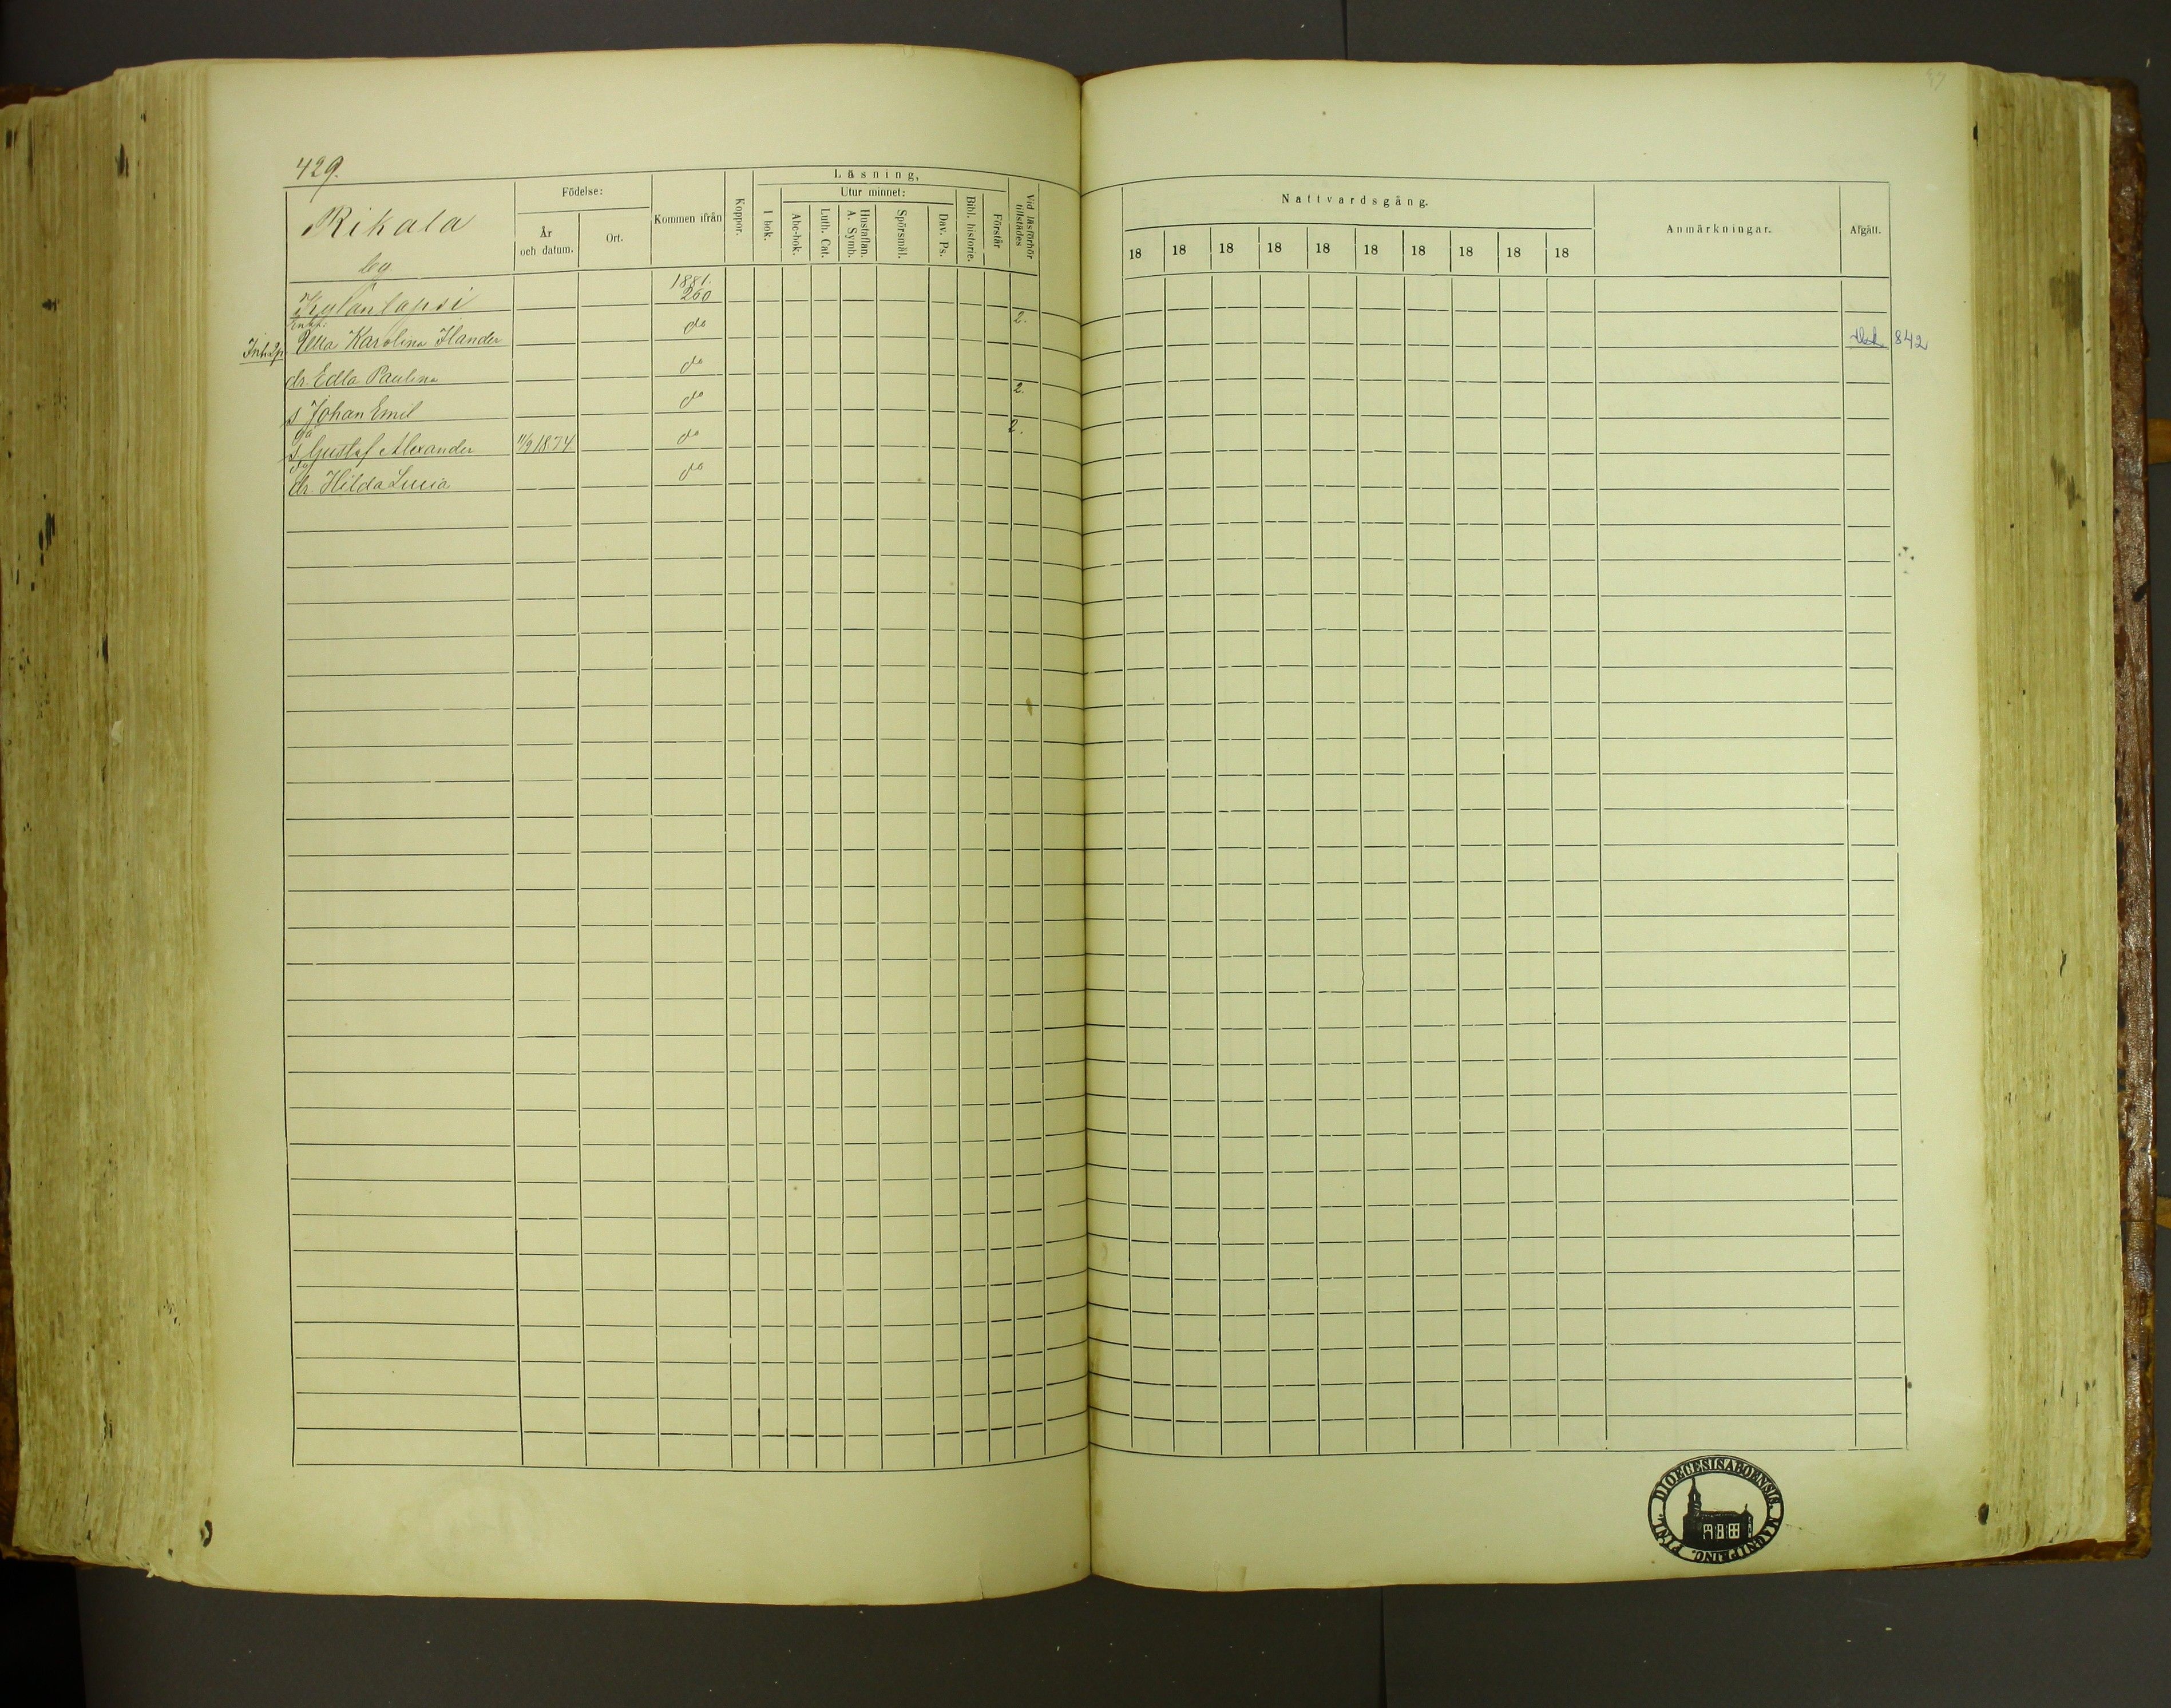 429.
Rikala
by
Födelse:
År och datum.
Ort.
Kommen ifrån
Koppor.
Läsning,
I bok.
Utur minnet:
Abc-bok.
Luth. Cat.
Hustaflan.
A. Symb.
Spörsmål.
Dav. Ps.
Bibl. historie.
Förstår
Vid läsförhör tillstädes
Nattvardsgång.
18 18 18 18 18 18 18 18 18 18
Anmärkningar.
Afgått.
Kylänlapsi 1881. 260
Enkf:
Inh. Ulla Karolina Ilander do 2. 842
dr. Edla Paulina do
s Johan Emil do 2.
s Gustaf Alexander 11/9 1874 do 2.
dr. Hilda Lucia do
DIOEGESISABOENSIS. MAGNI PRINC. FINL.